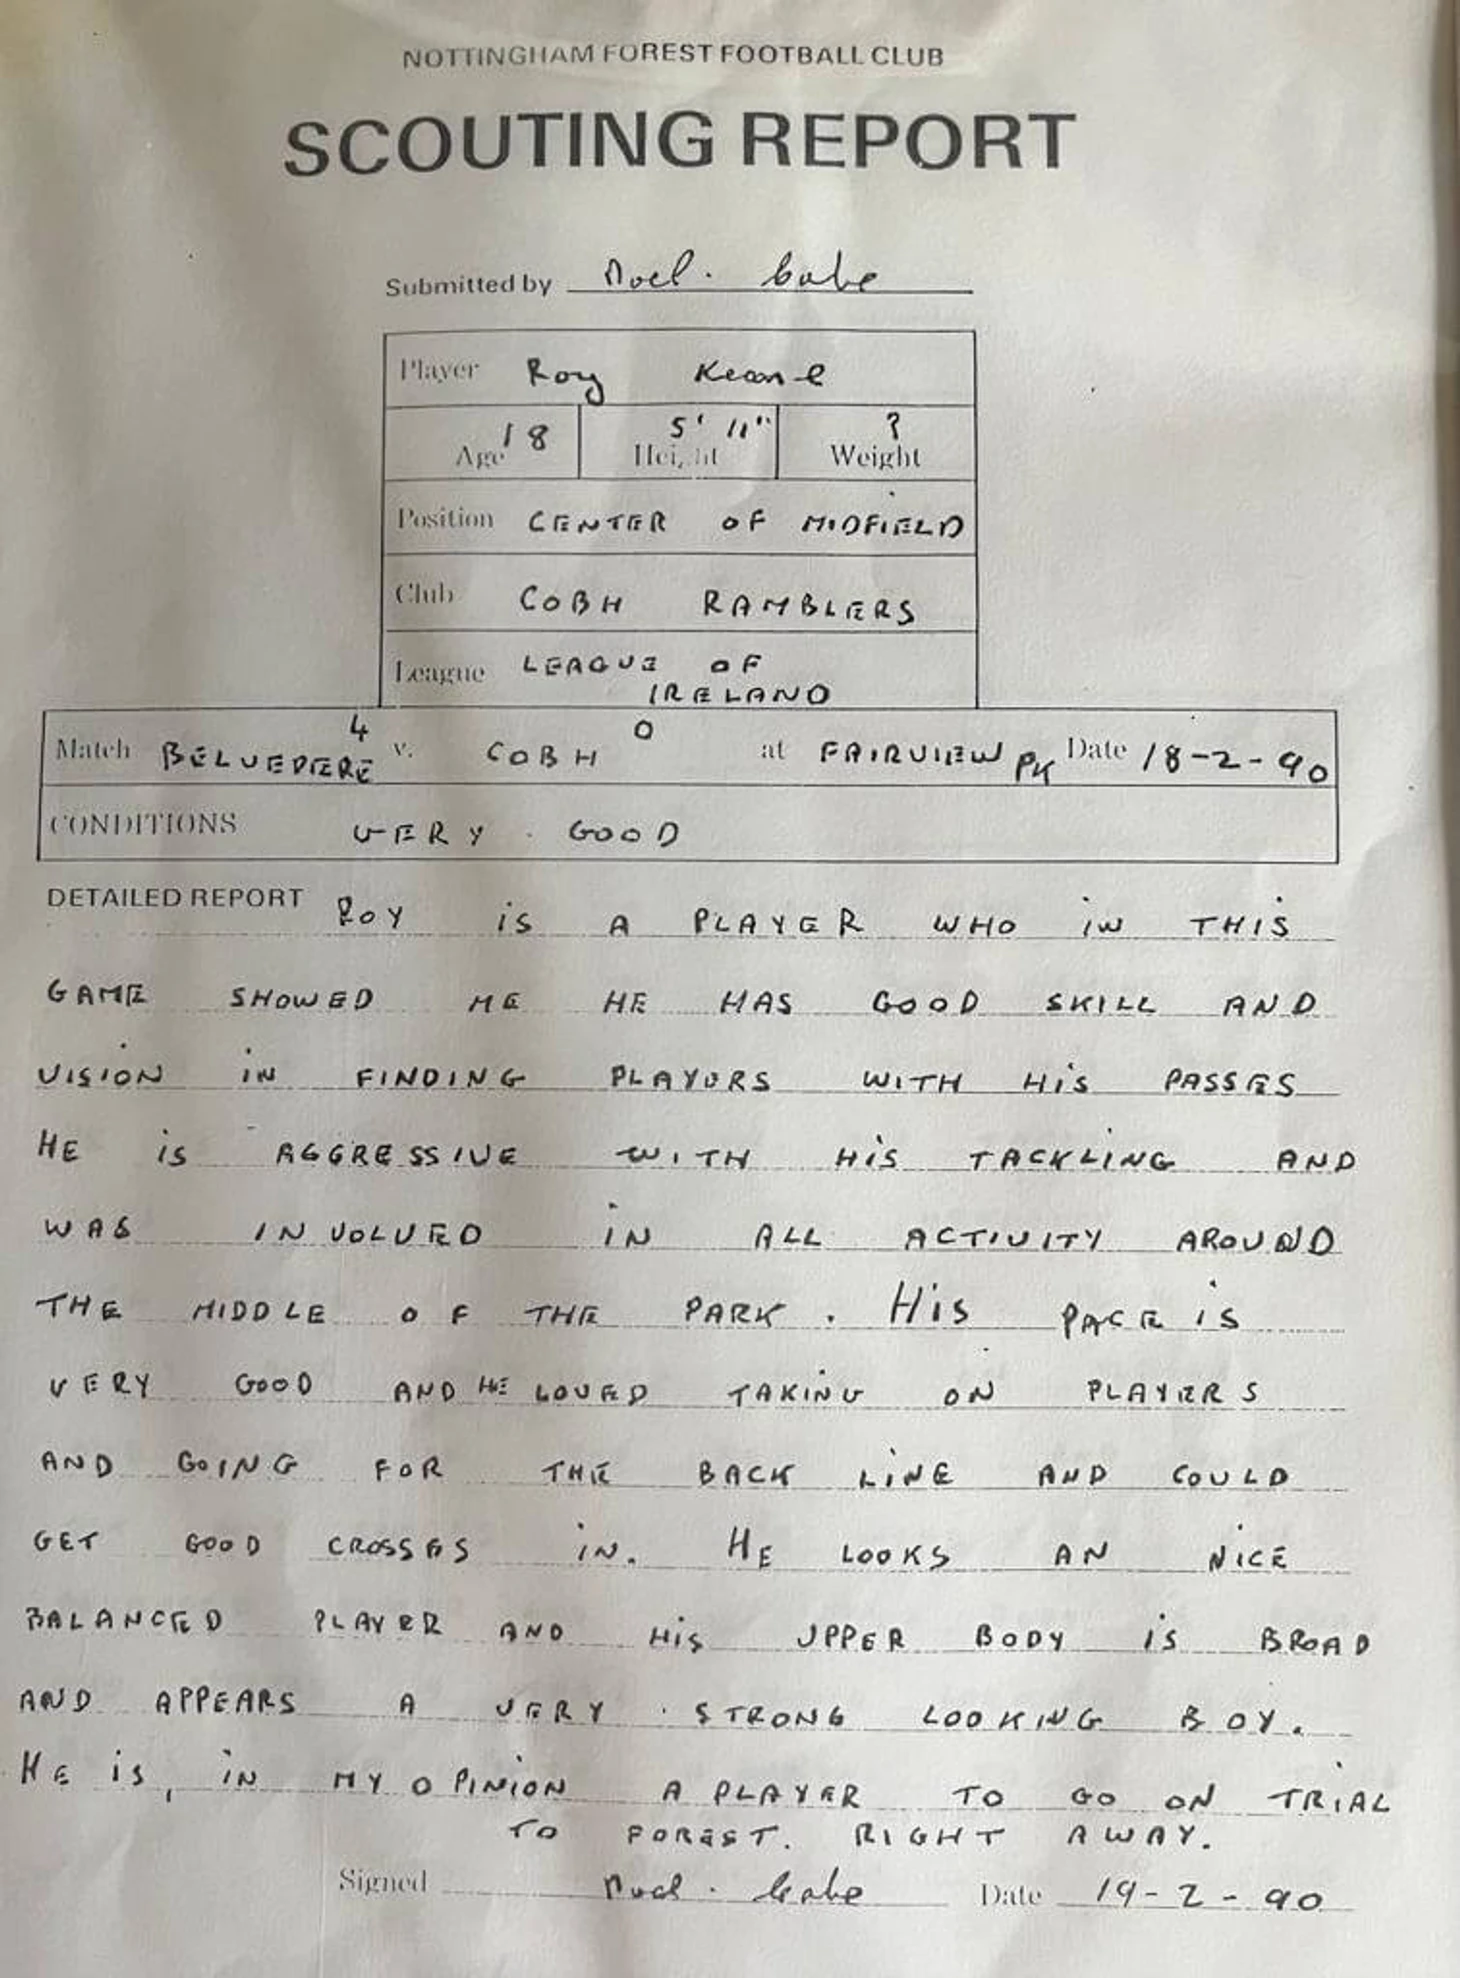 NOTTINGHAM FOREST FOOTBALL CLUB
SCOUTING REPORT
Submitted by Noel.
Player Roy Keane
Age 18 Height 5' 11" Weight ?
Position CENTER OF MIDFIELD
Club COBH RAMBLERS
League LEAGUE OF
IRELAND
Match BELVEDERE 4 v. COBH 0 at FAIRVIEW PK Date 18-2-90
CONDITIONS VERY GOOD
DETAILED REPORT ROY IS A PLAYER WHO IN THIS
GAME SHOWED ME HE HAS GOOD SKILL AND
VISION IN FINDING PLAYURS WITH HIS PASSES
HE IS AGGRESSIVE WITH HIS TACKLING AND
WAS INVOLVED IN ALL ACTIVITY AROUND
THE MIDDLE OF THE PARK. HIS PACE IS
VERY GOOD AND HE LOVED TAKING ON PLAYERS
AND GOING FOR THE BACK LINE AND COULD
GET GOOD CROSSES IN. HE LOOKS AN NICE
BALANCED PLAYER AND HIS UPPER BODY IS BROAD
AND APPEARS A VERY STRONG LOOKING BOY.
HE IS, IN MY OPINION A PLAYER TO GO ON TRIAL
TO FOREST. RIGHT AWAY.
Signed Noel. Date 19-2-90